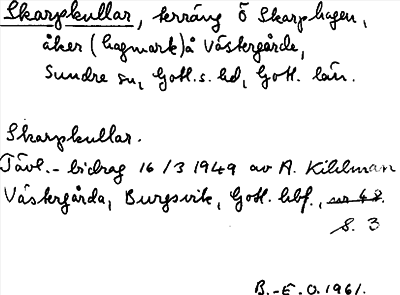 Skarpkullar, terräng Ö Skarphagen,
åker (hagmark) å Västergårde,
Sundre sn, Gotl. s. hd, Gotl. län.
Skarpkullar.
Tävl.- bidrag 16/3 1949 av A. Kihlman
Västergårda, Burgsvik, Gotl. hbf.,
s. 3
B.-E. O. 1961.